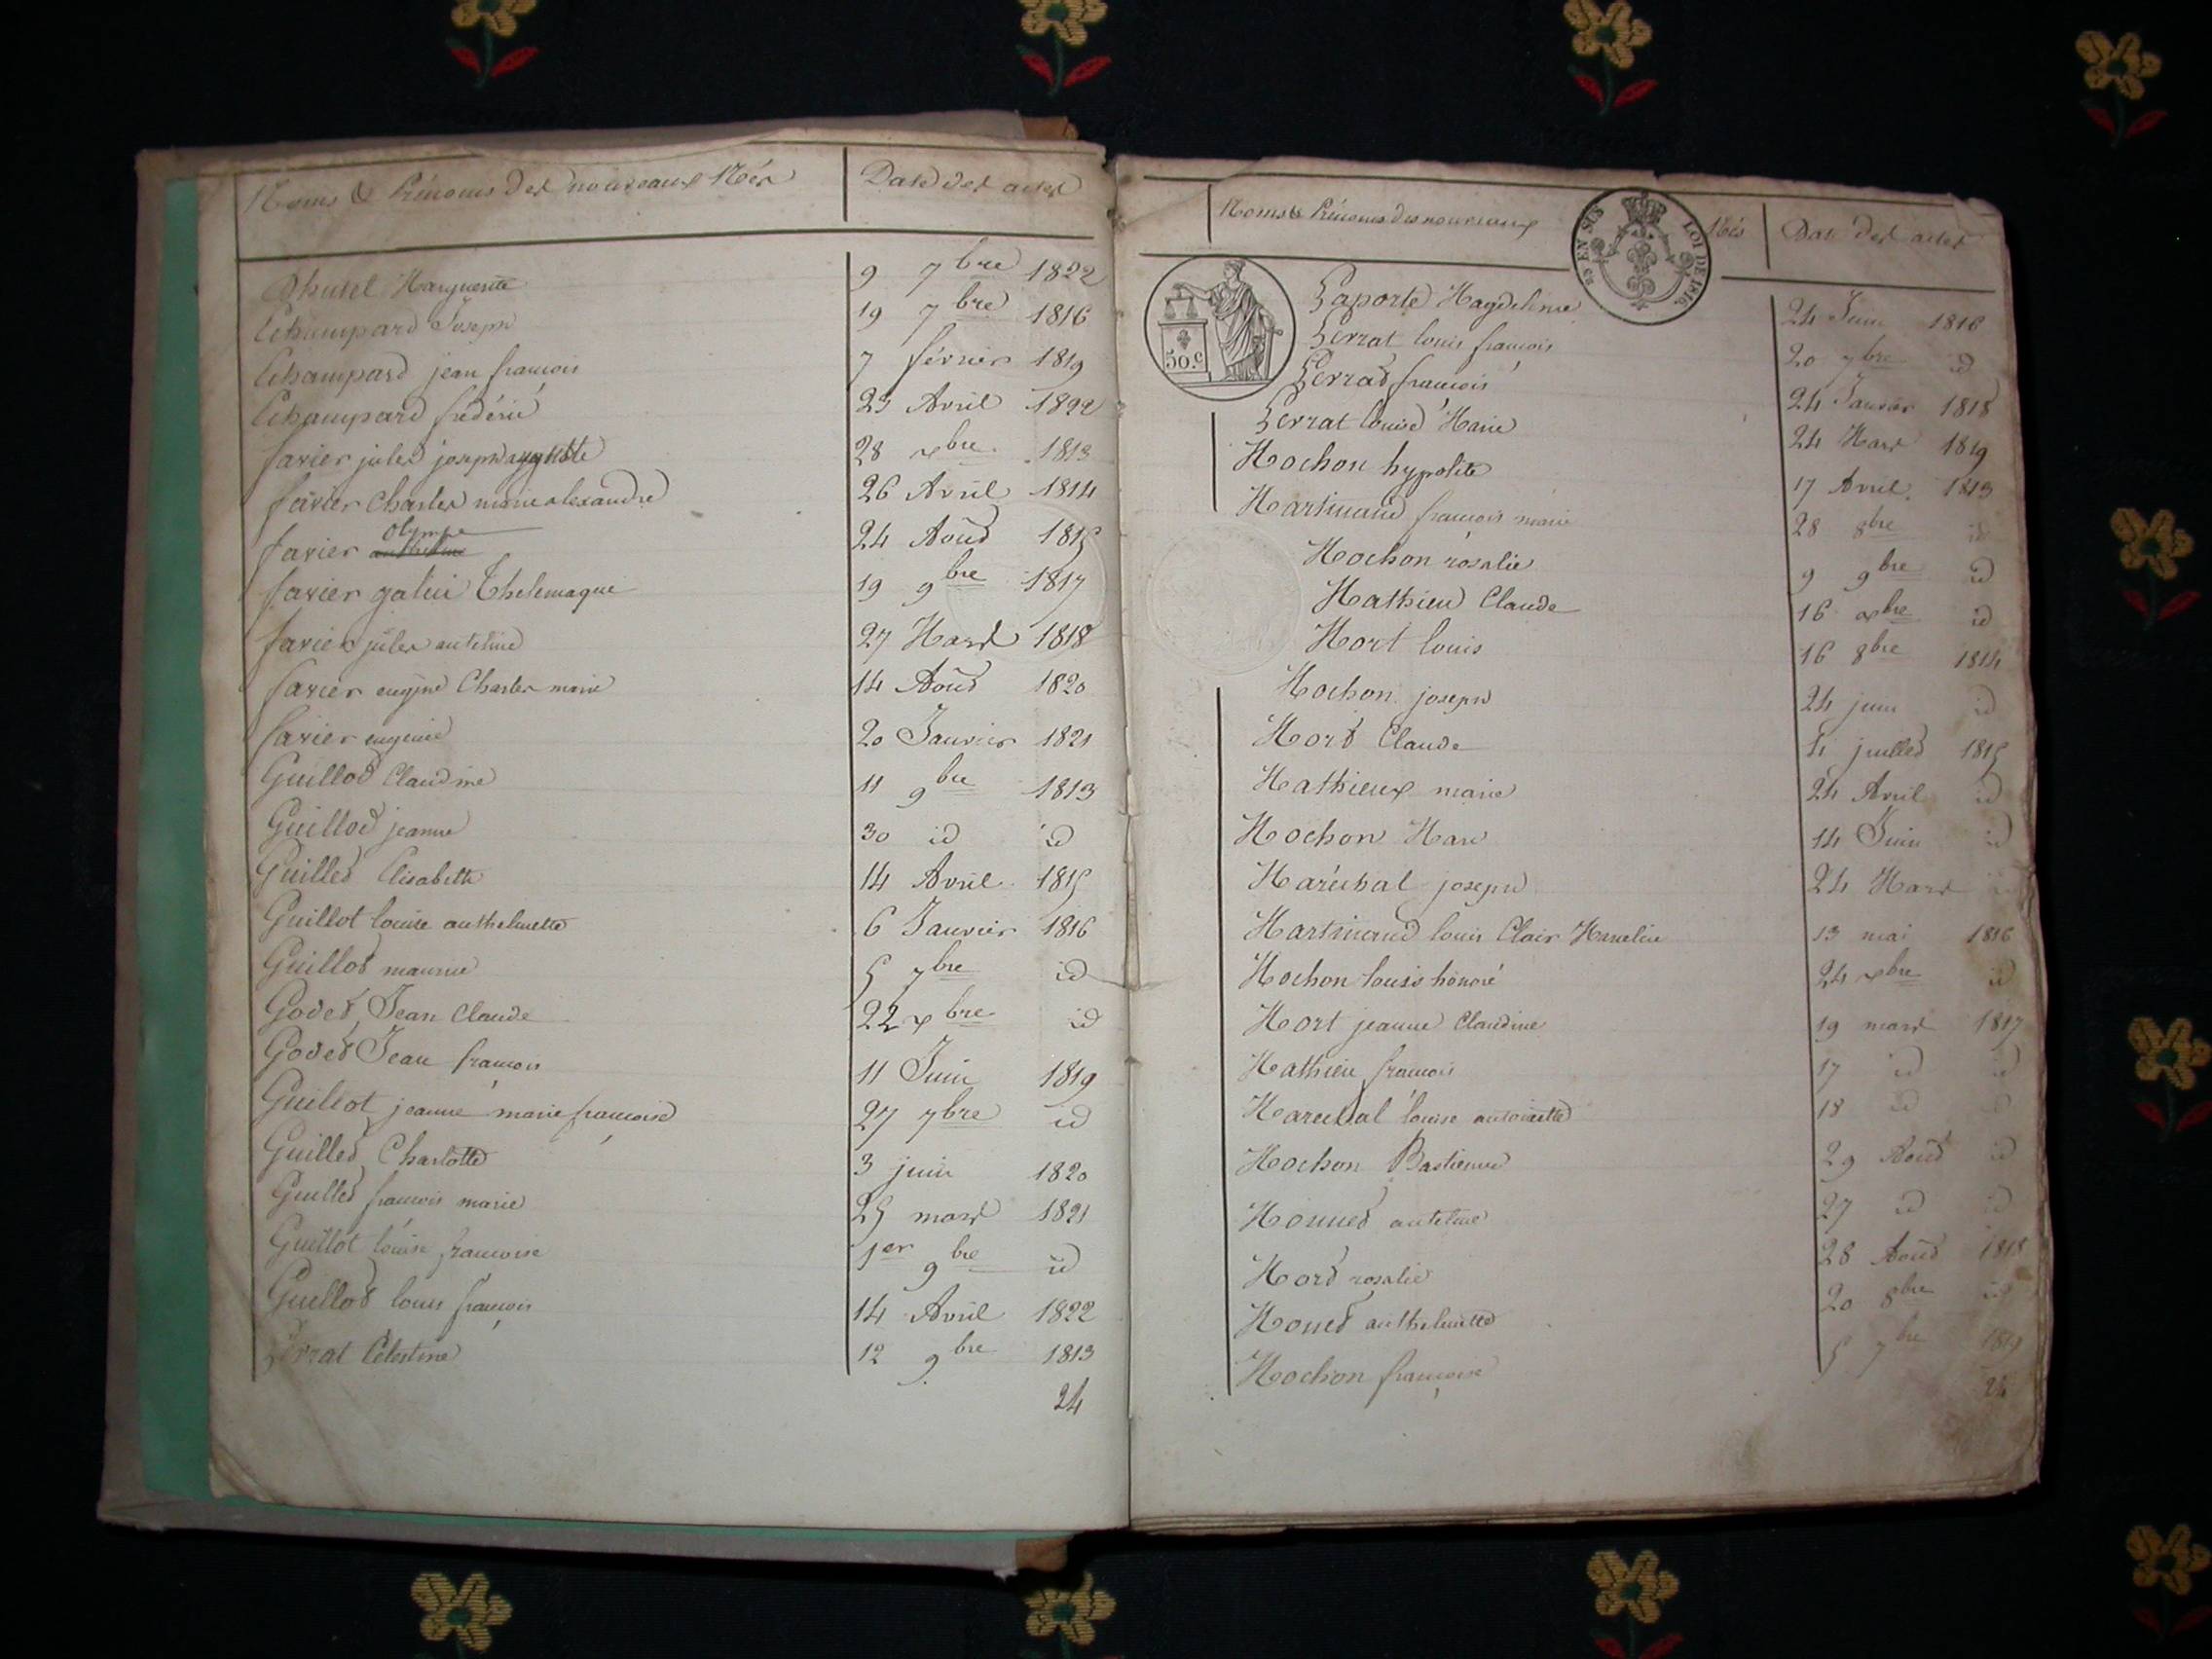 Noms & Prénoms des nouveaux Nés Date des actes
Dhutel Marguerite 9 7bre 1822
Echampard Joseph 19 7bre 1816
Echampard jean françois 7 février 1819
Echampard fréderic 23 Avril 1822
favier jules joseph auguste 28 xbre 1813
favier Charles marie alexandre 26 Avril 1814
Olympe
favier anthelme 24 Août 1815
favier galien Thelemaque 19 9bre 1817
favier jules antelme 27 Mars 1818
favier eugène Charles marie 14 Août 1820
favier eugenie 20 Janvier 1821
Guillot Claudine 11 9bre 1813
Guillot jeanne 30 id id
Guillet Elisabeth 14 Avril 1815
Guillot louise anthelmette 6 Janvier 1816
Guillot maurice 5 7bre id
Godet Jean Claude 22 xbre id
Godet Jean françois 11 Juin 1819
Guillot jeanne marie françoise 27 7bre id
Guillet Charlotte 3 juin 1820
Guillet françois marie 25 mars 1821
Guillot louise françoise 1er 9bre id
Guillot louis françois 14 Avril 1822
Gerrat Celestine 12 9bre 1813
24
Noms & Prénoms des nouveaux Nés Date des actes
EN SUS LOI DE 1816
50.c
Laporte Magdeleine 24 Juin 1816
Lerrat louis françois 20 7bre id
Lerrat françois 24 Janvier 1818
Lerrat louise Marie 24 Mars 1819
Mochon hypolite 17 Avril 1813
Martinand françois marie 28 8bre id
Mochon rosalie 9 9bre id
Mathieu Claude 16 xbre id
Mort louis 16 8bre 1814
Mochon joseph 24 juin id
Mort Claude 4 juillet 1815
Mathieux marie 24 Avril id
Mochon Marc 14 Juin id
Maréchal joseph 24 Mars id
Martinand louis Clair Marcelin 13 mai 1816
Mochon louis honoré 24 xbre id
Mort jeanne Claudine 19 mars 1817
Mathieu françois 17 id id
Marechal louise antoinette 18 id id
Mochon Bastienne 29 Août id
Monnet antelme 27 id id
Mort rosalie 28 Août 1818
Monet anthelmette 20 8bre id
Mochon françoise 5 7bre 1819
24